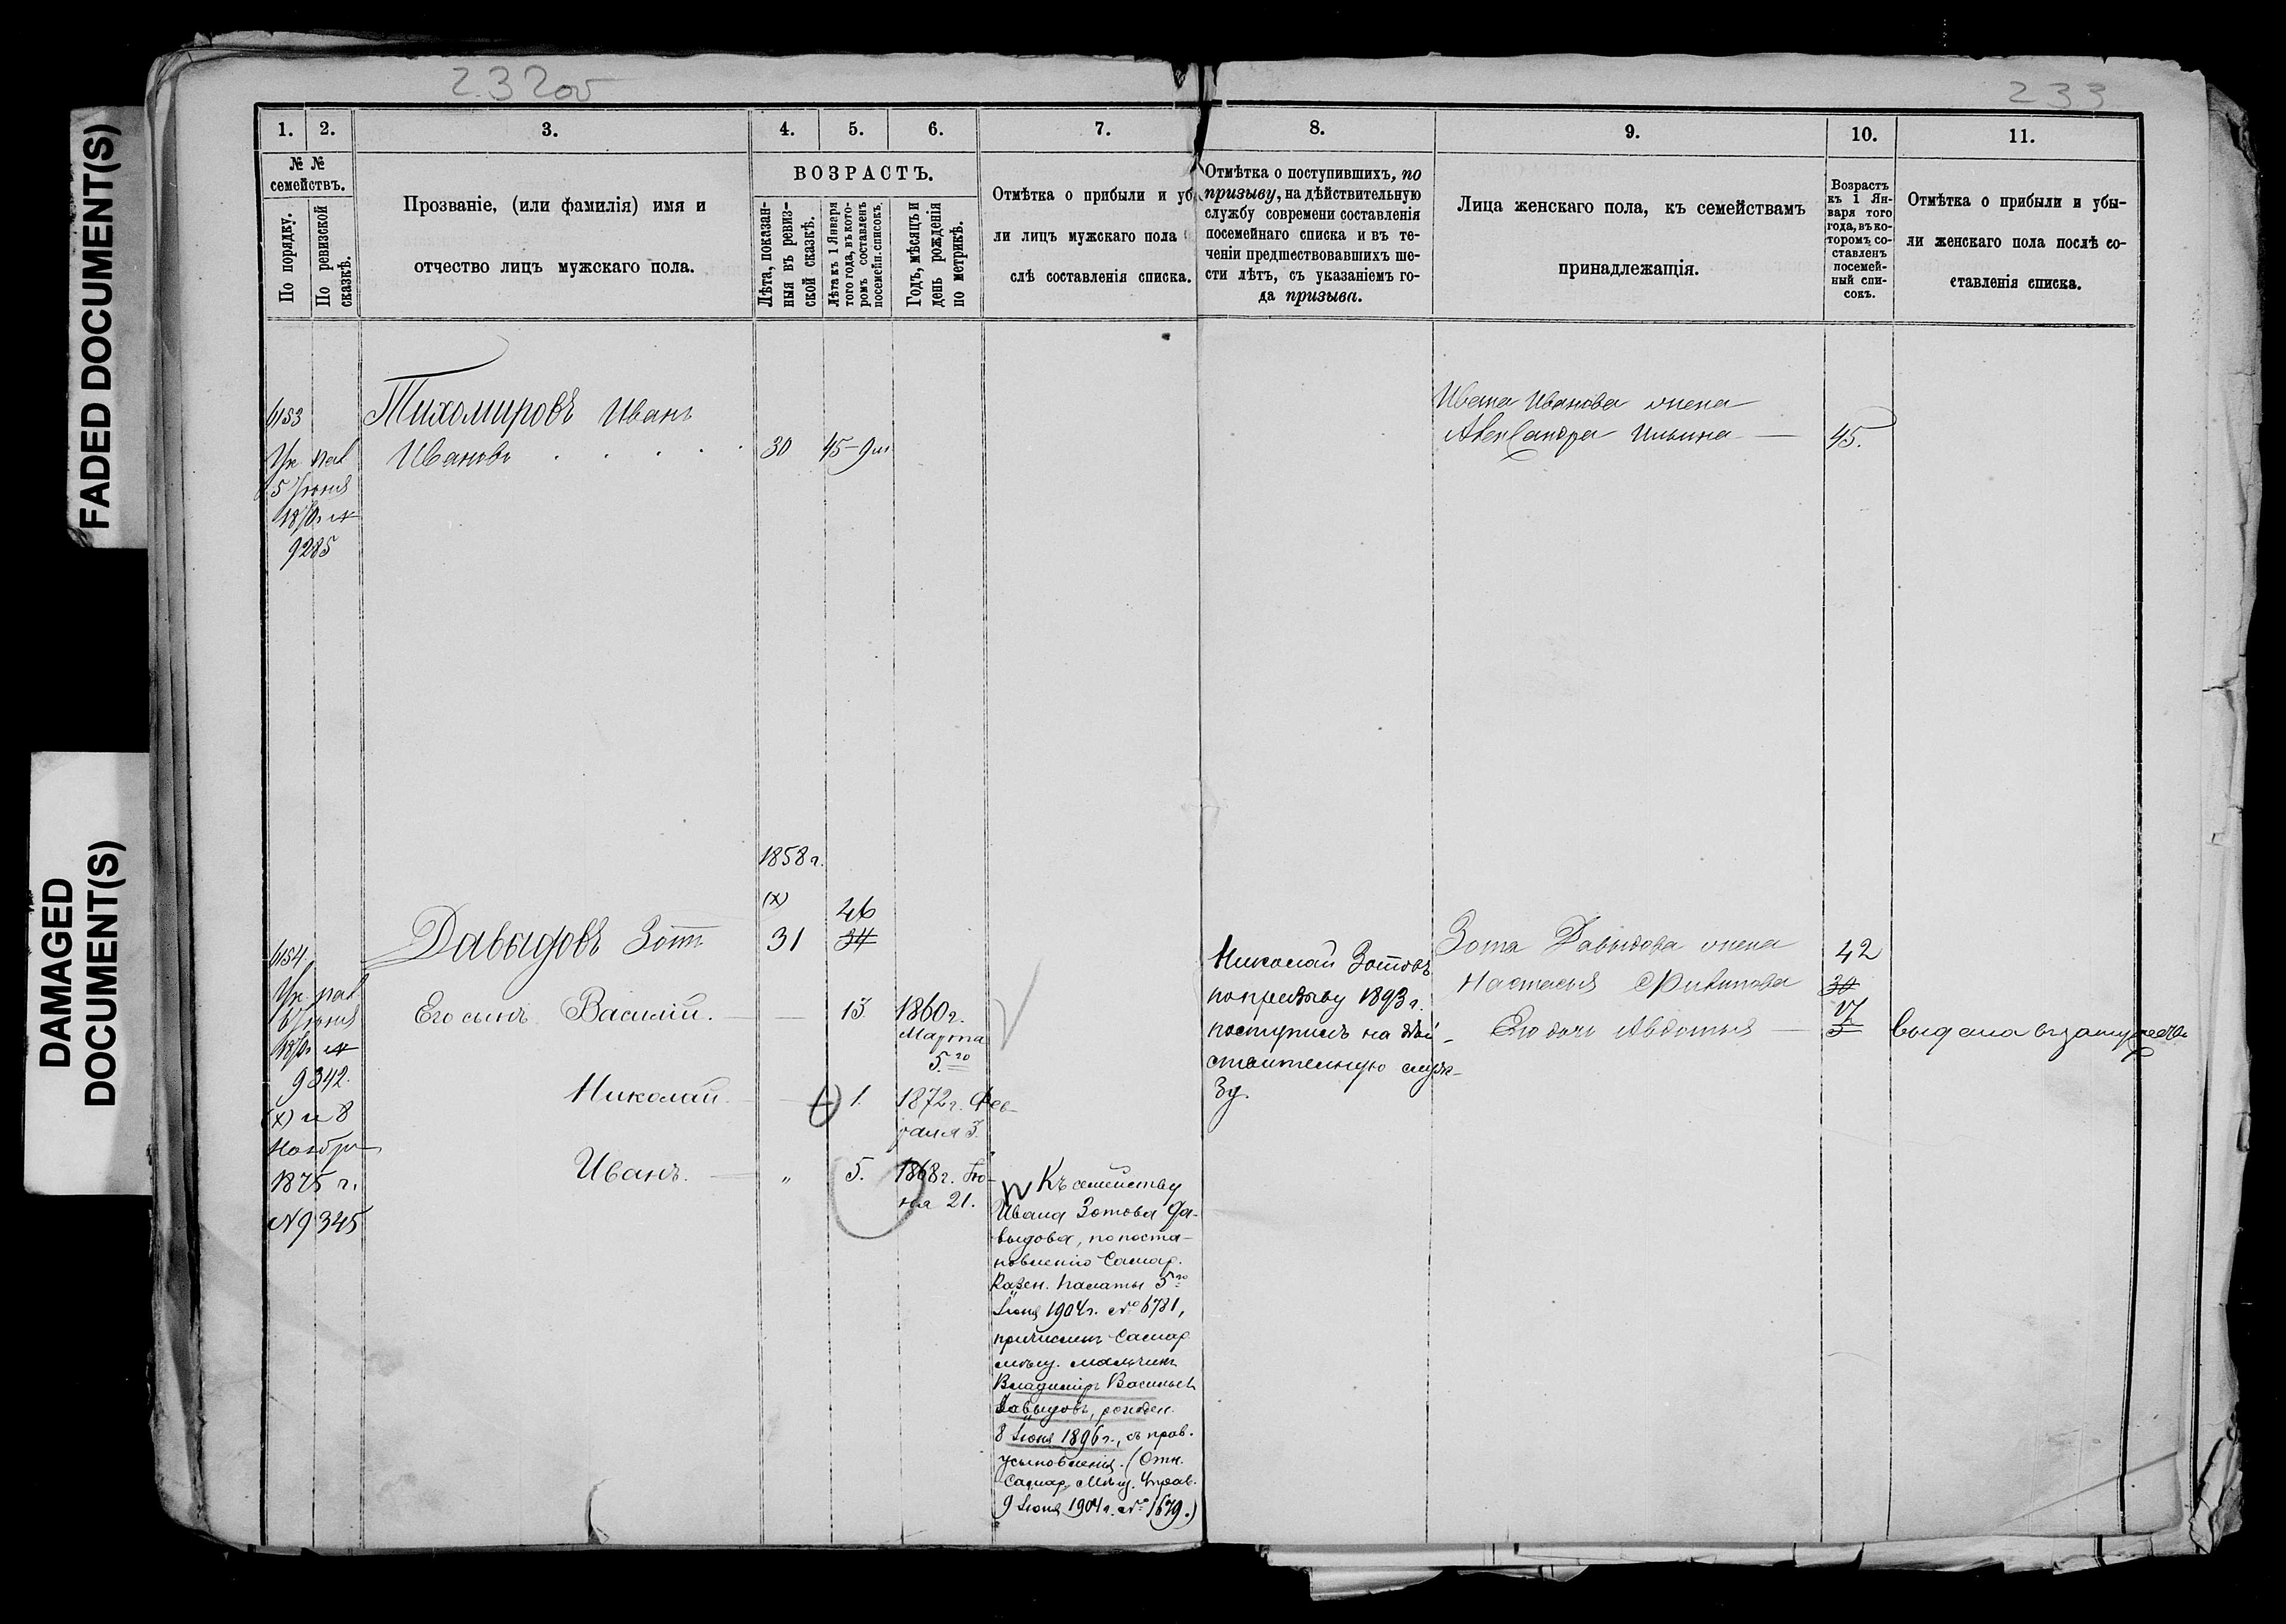 FADED DOCUMENT(S)
DAMAGED
DOCUMENT(S)
232 об
233
1.
2.
3.
4.
5.
6.
7.
8.
9.
10.
11.
№ №
семействъ.
По порядку.
По ревизской
сказкѣ.
Прозваніе, (или фамилія) имя и
отчество лицъ мужскаго пола.
ВОЗРАСТЪ.
Лѣта, показан-
ныя въ ревиз-
ской сказкѣ.
Лѣта къ 1 Января
того года, въ кото-
ромъ составленъ
посемейн. списокъ.
Годъ, мѣсяцъ и
день рожденія
по метрикѣ.
Отмѣтка о прибыли и уб
ли лицъ мужскаго пола
слѣ составленія списка.
Отмѣтка о поступившихъ, по
призыву, на дѣйствительную
службу современи составленія
посемейнаго списка и въ те-
ченіи предшествовавшихъ ше-
сти лѣтъ, съ указаніемъ го-
да призыва.
Лица женскаго пола, къ семействамъ
принадлежащія.
Возрастъ
къ 1 Ян-
варя того
года, въ ко-
торомъ со-
ставленъ
посемей-
ный спи-
сокъ.
Отмѣтка о прибыли и убы-
ли женскаго пола послѣ со-
ставленія списка.
6153
Ук. пал
5 Іюня
9285
Тихомировъ Иванъ
Ивановъ
30
45-9 м
Ивана Иванова жена
Александра Ильина
45.
1858 г.
(х)
46
6154.
Ук. пал
6 Іюня
9342.
(х) и 8
Ноября
1875 г.
№ 9345
Давыдовъ Зотъ
31
34
Его сынъ Василій.
13
1860 г.
Марта
5го
Николай
1.
1872 г. Фев-
раля 3.
Иванъ.
"
5.
1868 г. Ію-
ня 21.
Къ семейству
Ивана Зотова Да-
выдова, по поста-
новленію Самар.
Казен. Палаты 5го
Іюня 1904 г. № 6781,
причисленъ Самар
мѣщ. мальчикъ
Владиміръ Васильевъ
Давыдовъ, рожден.
8 Іюня 1896 г., съ прав.
усыновленія. (Отн.
Самар. Мѣщ. Управ.
9 Іюня 1904 г. № 1679.)
Николай Зотовъ
по призыву 1893 г.
поступилъ на дѣй-
ствительную служ-
бу.
Зота Давыдова жена
42
Настасья Филипова
30
17
Его дочь Авдотья
5
выдана въ замужество